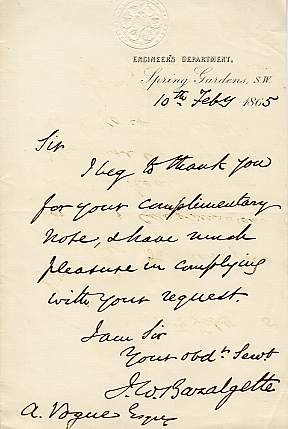 ENGINEER'S DEPARTMENT,
Spring Gardens, S.W.
10th Feby 1865
Sir
I beg to thank you
for your complimentary
note, & have much
pleasure in complying
with your request
I am Sir
Your obdt. Servt
J. W. Bazalgette
A. Vogue Esqre